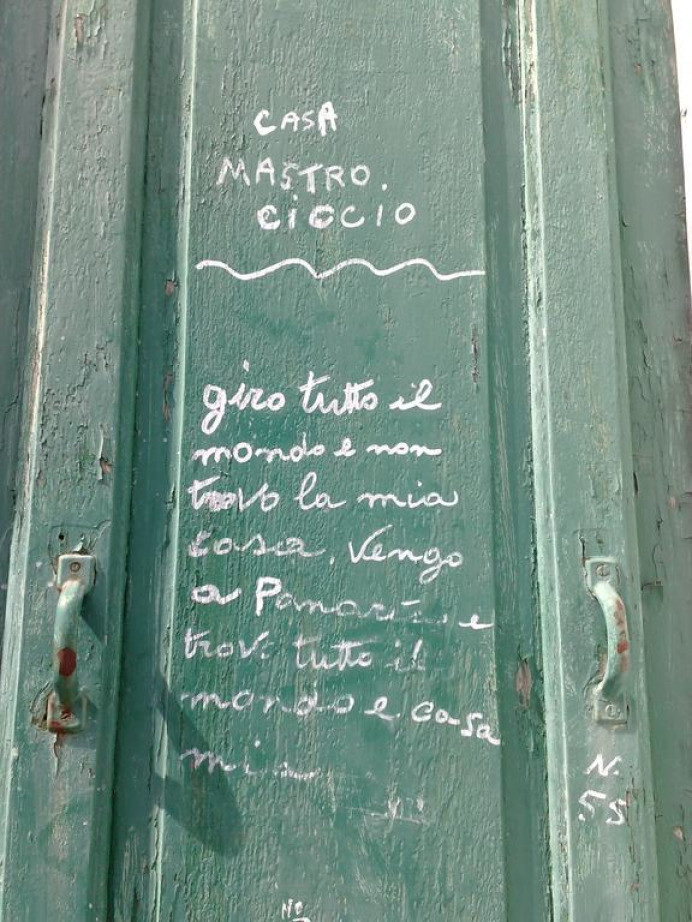 CASA
MASTRO.
CIOCIO
giro tutto il
mondo e non
trovo la mia
casa, Vengo
a e
trovo tutto il
mondo e casa
mia
N.
55
No